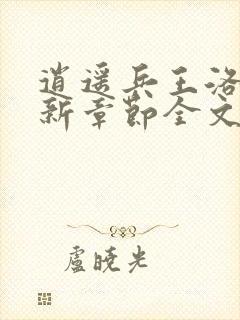 逍遥兵王洛
新章节全文
盧曉光